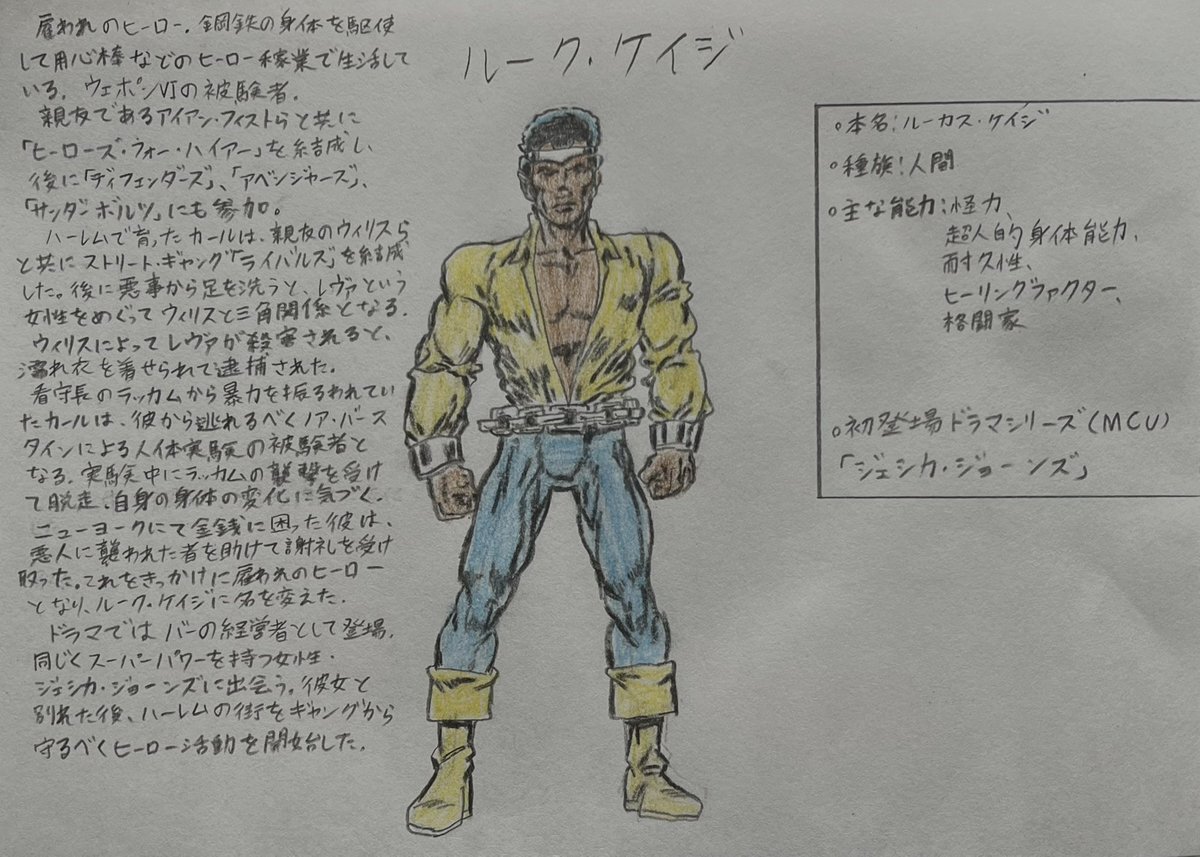 ルーク・ケイジ
雇われのヒーロー。鋼鉄の身体を駆使
して用心棒などのヒーロー稼業で生活して
いる。ウェポンⅥの被験者。
親友であるアイアン・フィストらと共に
「ヒーローズ・フォー・ハイアー」を結成し、
後に「ディフェンダーズ」、「アベンジャーズ」、
「サンダーボルツ」にも参加。
ハーレムで育ったカールは、親友のウィリスら
と共にストリート・ギャング「ライバルズ」を結成
した。後に悪事から足を洗うと、レヴァという
女性をめぐってウィリスと三角関係となる。
ウィリスによってレヴァが殺害されると、
濡れ衣を着せられて逮捕された。
看守長のラッカムから暴力を振るわれてい
たカールは、彼から逃れるべくノア・バース
タインによる人体実験の被験者と
なる。実験中にラッカムの襲撃を受け
て脱走、自身の身体の変化に気づく。
ニューヨークにて金銭に困った彼は、
悪人に襲われた者を助けて謝礼を受け
取った。これをきっかけに雇われのヒーロー
となり、ルーク・ケイジに名を変えた。
ドラマではバーの経営者として登場。
同じくスーパーパワーを持つ女性・
ジェシカ・ジョーンズに出会う。彼女と
別れた後、ハーレムの街をギャングから
守るべくヒーロー活動を開始した。
○本名:ルーカス・ケイジ
○種族:人間
○主な能力:怪力、
超人的身体能力、
耐久性、
ヒーリングファクター、
格闘家
○初登場ドラマシリーズ(MCU)
「ジェシカ・ジョーンズ」